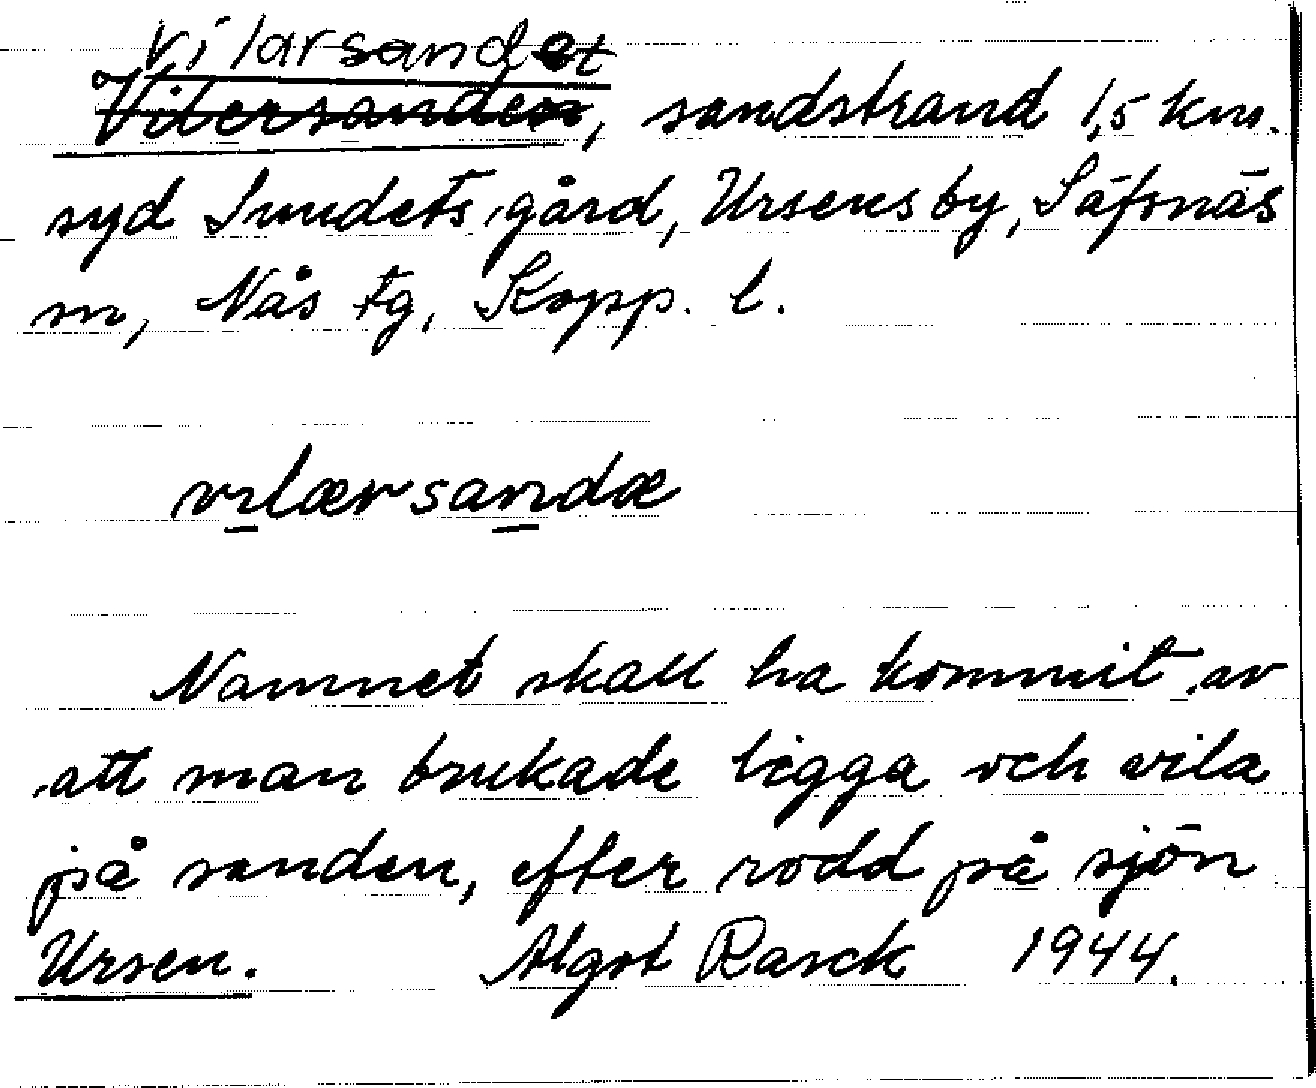 Vilarsandet
Vilersanden, sandstrand 1,5 km.
syd Sundets gård, Ursens by, Säfsnäs
sn, Nås tg, Kopp. l.
vılærsandæ
Namnet skall ha kommit av
att man brukade ligga och vila
på sanden, efter rodd på sjön
Ursen. Algot Rasck 1944.